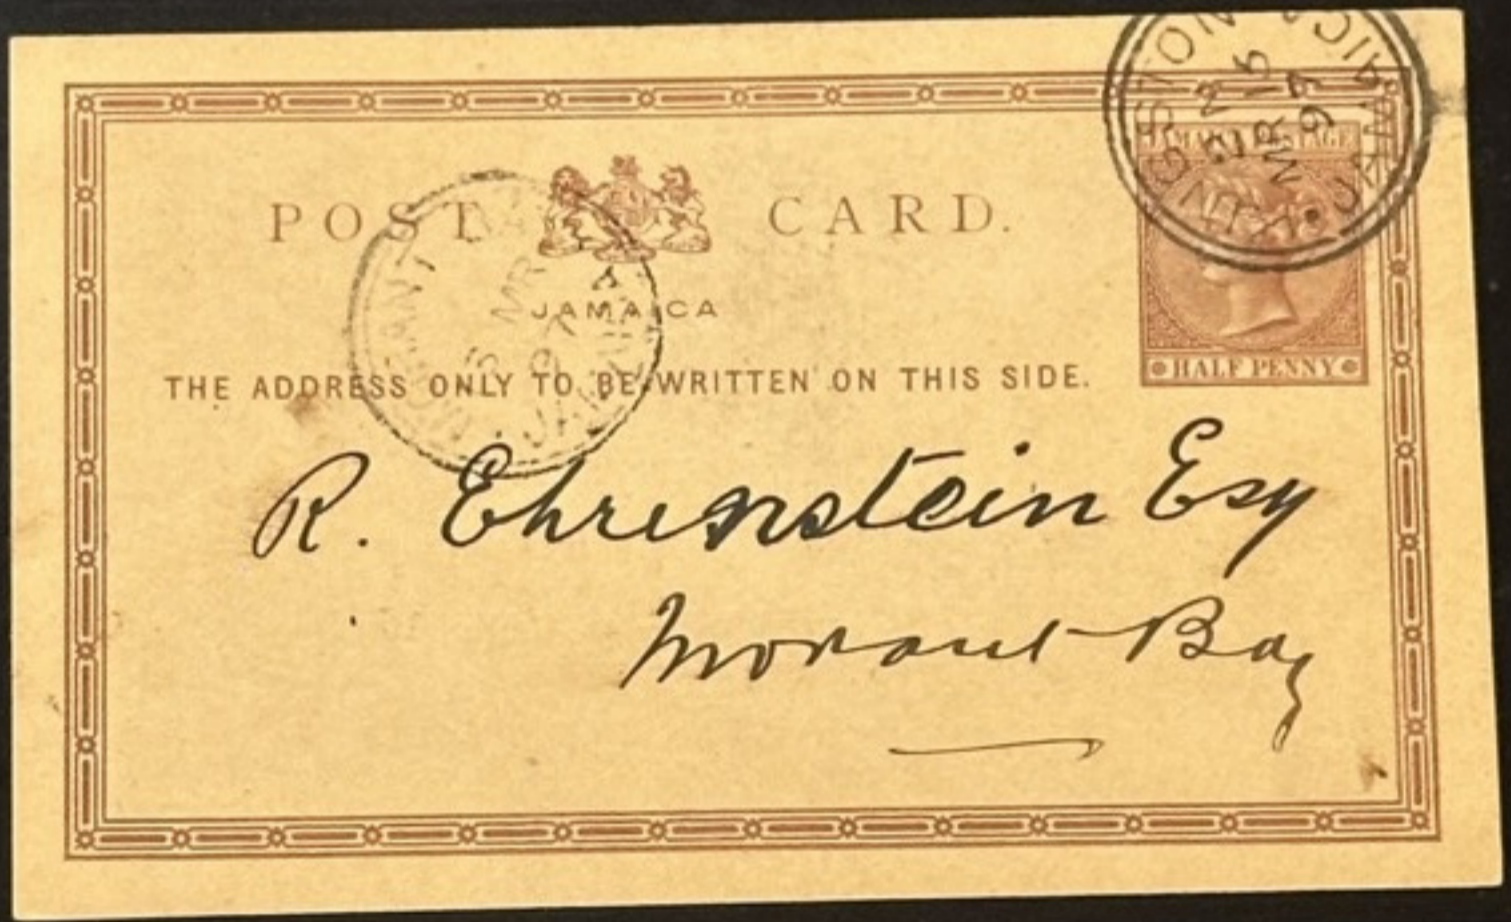 KINGSTON JAMAICA
MR 15
97
JAMAICA POSTAGE
POST CARD.
JAMAICA
THE ADDRESS ONLY TO BE WRITTEN ON THIS SIDE.
HALF PENNY
MORANT
MR
97
JAMAICA
R. Ehrenstein Esq
Morant Bay